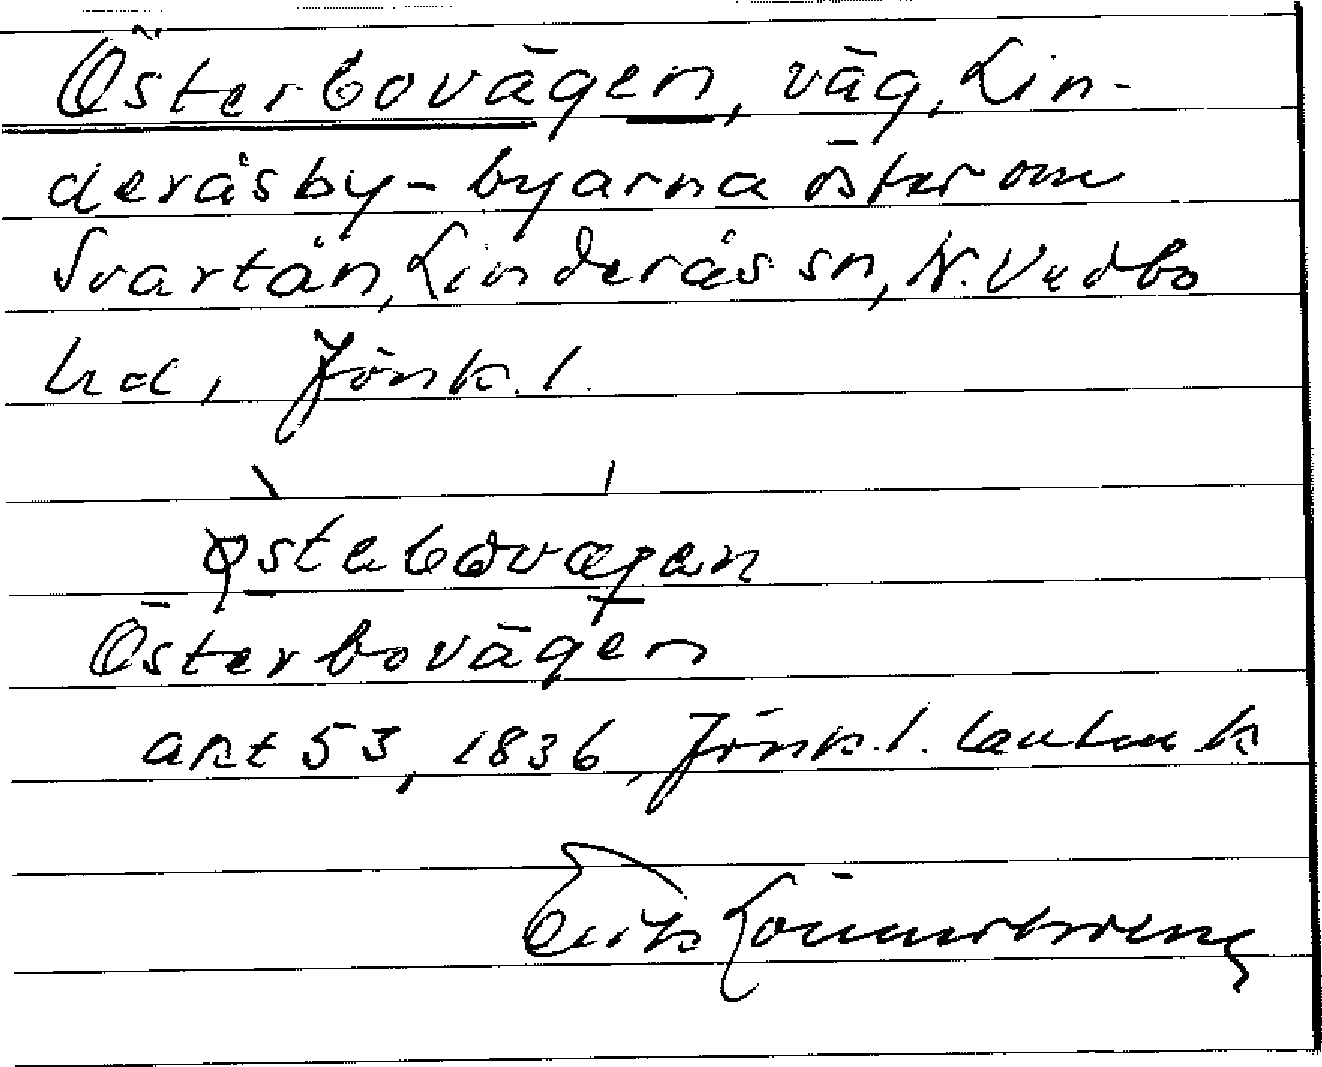 Österbovägen, väg, Lin-
deråsby - byarna öster om
Svartån, Linderås sn, N. Vedbo
hd, Jönk. l.
Österbovägen
akt 53, 1836, Jönk. l. lantm k
Erik